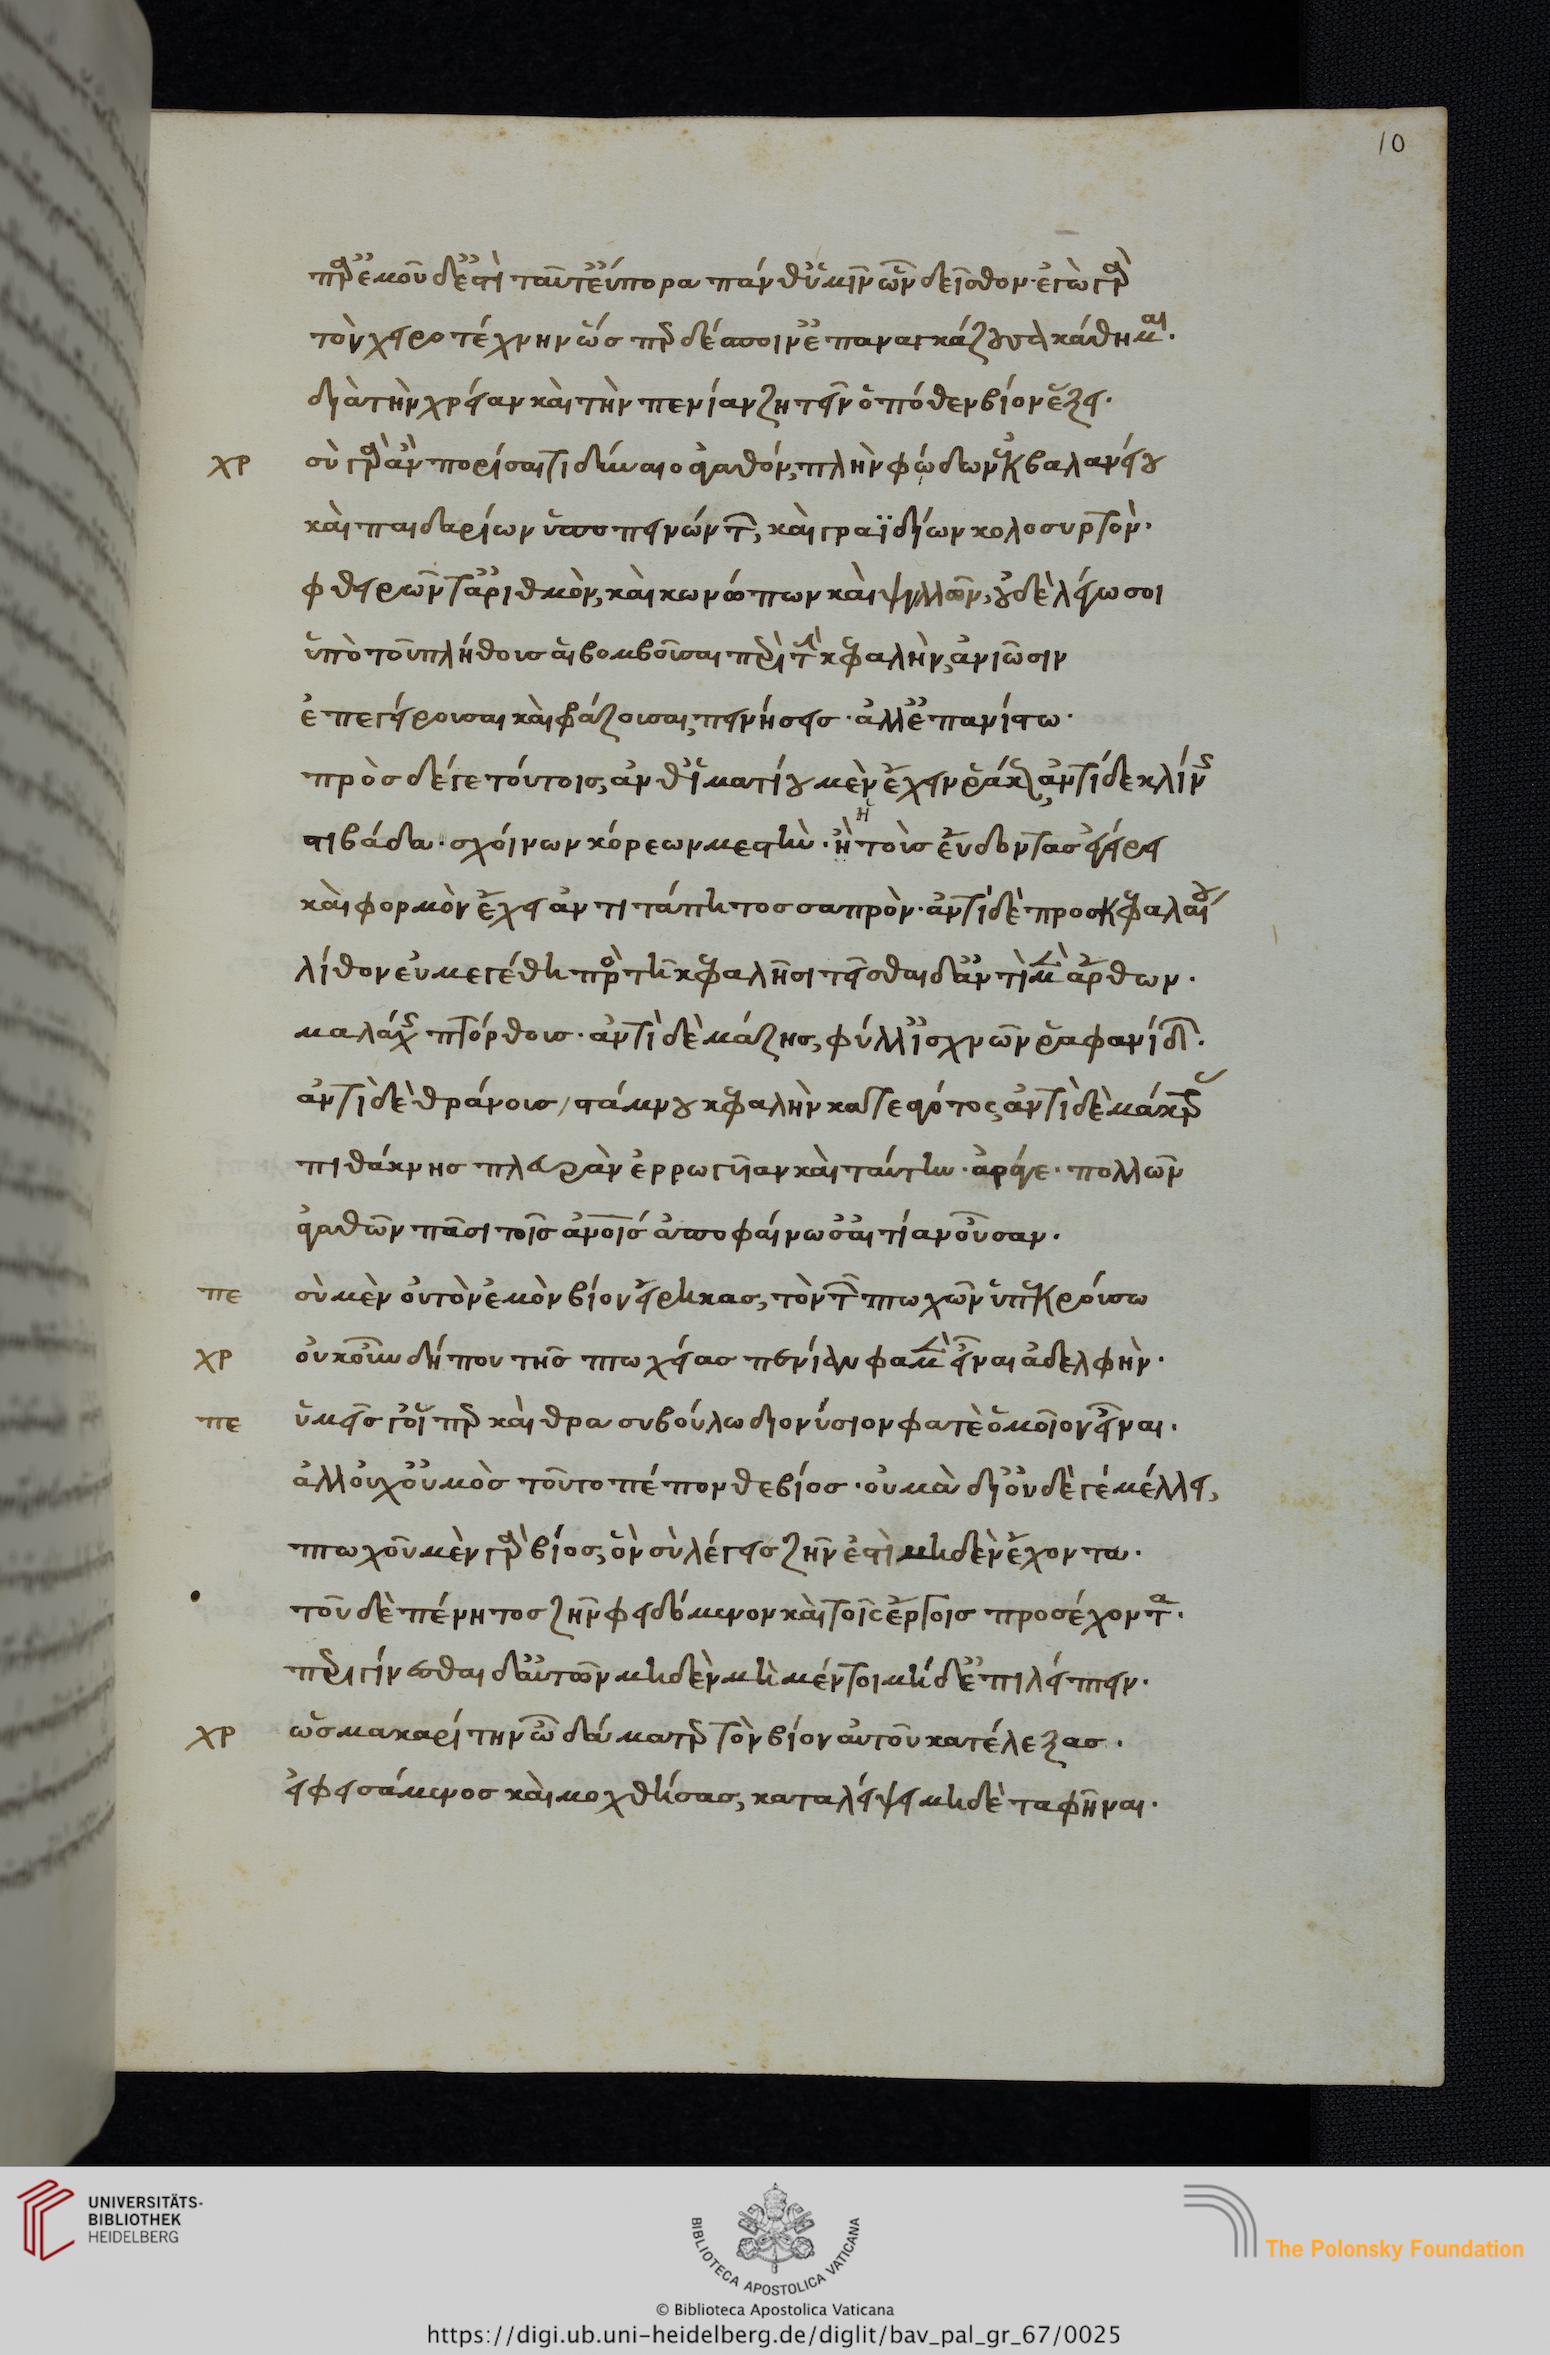 10
παρ' ἐμοῦ δ' ἐστὶ ταῦτ' εὔπορα πάνθ' ὑμῖν ὧν δεῖσθον· ἐγὼ γὰρ
τὸν χειροτέχνην ὥσπερ δέσποιν' ἐπαναγκάζουσα κάθημαι·
διὰ τὴν χρείαν καὶ τὴν πενίαν ζητεῖν ὁπόθεν βίον ἕξει·
χρ σὺ γὰρ ἂν πορίσαι τί δύναιο ἀγαθόν, πλὴν φώδων ἐκ βαλανείου
καὶ παιδαρίων ὑποπεινώντων, καὶ γραϊδίων κολοσυρτὸν·
φθειρῶν τ' ἀριθμὸν, καὶ κωνώπων καὶ ψυλλῶν, οὐδὲ λέγω σοι
ὑπὸ τοῦ πλήθους αἳ βομβοῦσαι περὶ τὴν κεφαλὴν, ἀνιῶσιν
ἐπεγείρουσαι καὶ φράζουσαι, πεινήσεις· ἀλλ' ἐπανίστω·
πρὸς δέ γε τούτοις, ἀνθ' ἱματίου μὲν ἔχειν ῥάκος, ἀντὶ δε κλίνης
στιβάδα· σχοίνων κόρεων μεστὴν· ἢ τοὺς εὕδοντας ἐγείρει
ἢ
καὶ φορμὸν ἔχει ἀντι τάπητος σαπρὸν· ἀντὶ δὲ προσκεφαλαίου
λίθον εὐμεγέθη πρὸς τῇ κεφαλῇ σιτεῖσθαι δ' ἀντὶ μὲν ἄρθων·
μαλάχης πτόρθους· ἀντὶ δὲ μάζης, φύλλ' ἰσχνῶν ῥαφανίδων·
ἀντὶ δὲ θράνους, στάμνου κεφαλὴν κατεαγότος, ἀντὶ δὲ μάκτρας
πιθάκνης πλευρὰν ἐρρωγυῖαν καὶ ταύτην· ἆρά γε· πολλῶν
ἀγαθῶν πᾶσι τοῖς ἀνοις ἀποφαίνω σ' αἰτίαν οὖσαν·
πε σὺ μὲν οὐ τὸν ἐμὸν βίον εἴρηκας, τὸν τῶν πτωχῶν ὑπεκρούσω
χρ οὐκοῦν δήπου τῆς πτωχείας πενίαν φαμὲν εἶναι ἀδελφὴν·
πε ὑμεῖς γ' οἵπερ καὶ θρασυβούλω διονύσιον φατὲ ὅμοιον εἶναι·
ἀλλ' οὐχ οὑμὸς τοῦτο πέπονθε βίος· οὐ μὰ δί' οὐδὲ γέ μέλλει,
πτωχοῦ μὲν γὰρ βίος, ὃν σὺ λέγεις ζῆν ἐστὶ μηδὲν ἔχοντα·
τοῦ δὲ πένητος ζῆν φειδόμενον καὶ τοῖς ἔργοις προσέχοντα·
περιγίνεσθαι δ' αὐτῶν μηδὲν μὴ μέντοι μήδ' ἐπιλείπειν·
χρ ὡς μακαρίτην ὦ δάματερ τὸν βίον αὐτοῦ κατέλεξας·
εἰ φεισάμενος καὶ μοχθήσας, καταλείψει μηδὲ ταφῆναι·
UNIVERSITÄTS-
BIBLIOTHEK
HEIDELBERG
BIBLIOTECA APOSTOLICA VATICANA
The Polonsky Foundation
© Biblioteca Apostolica Vaticana
https://digi.ub.uni-heidelberg.de/diglit/bav_pal_gr_67/0025